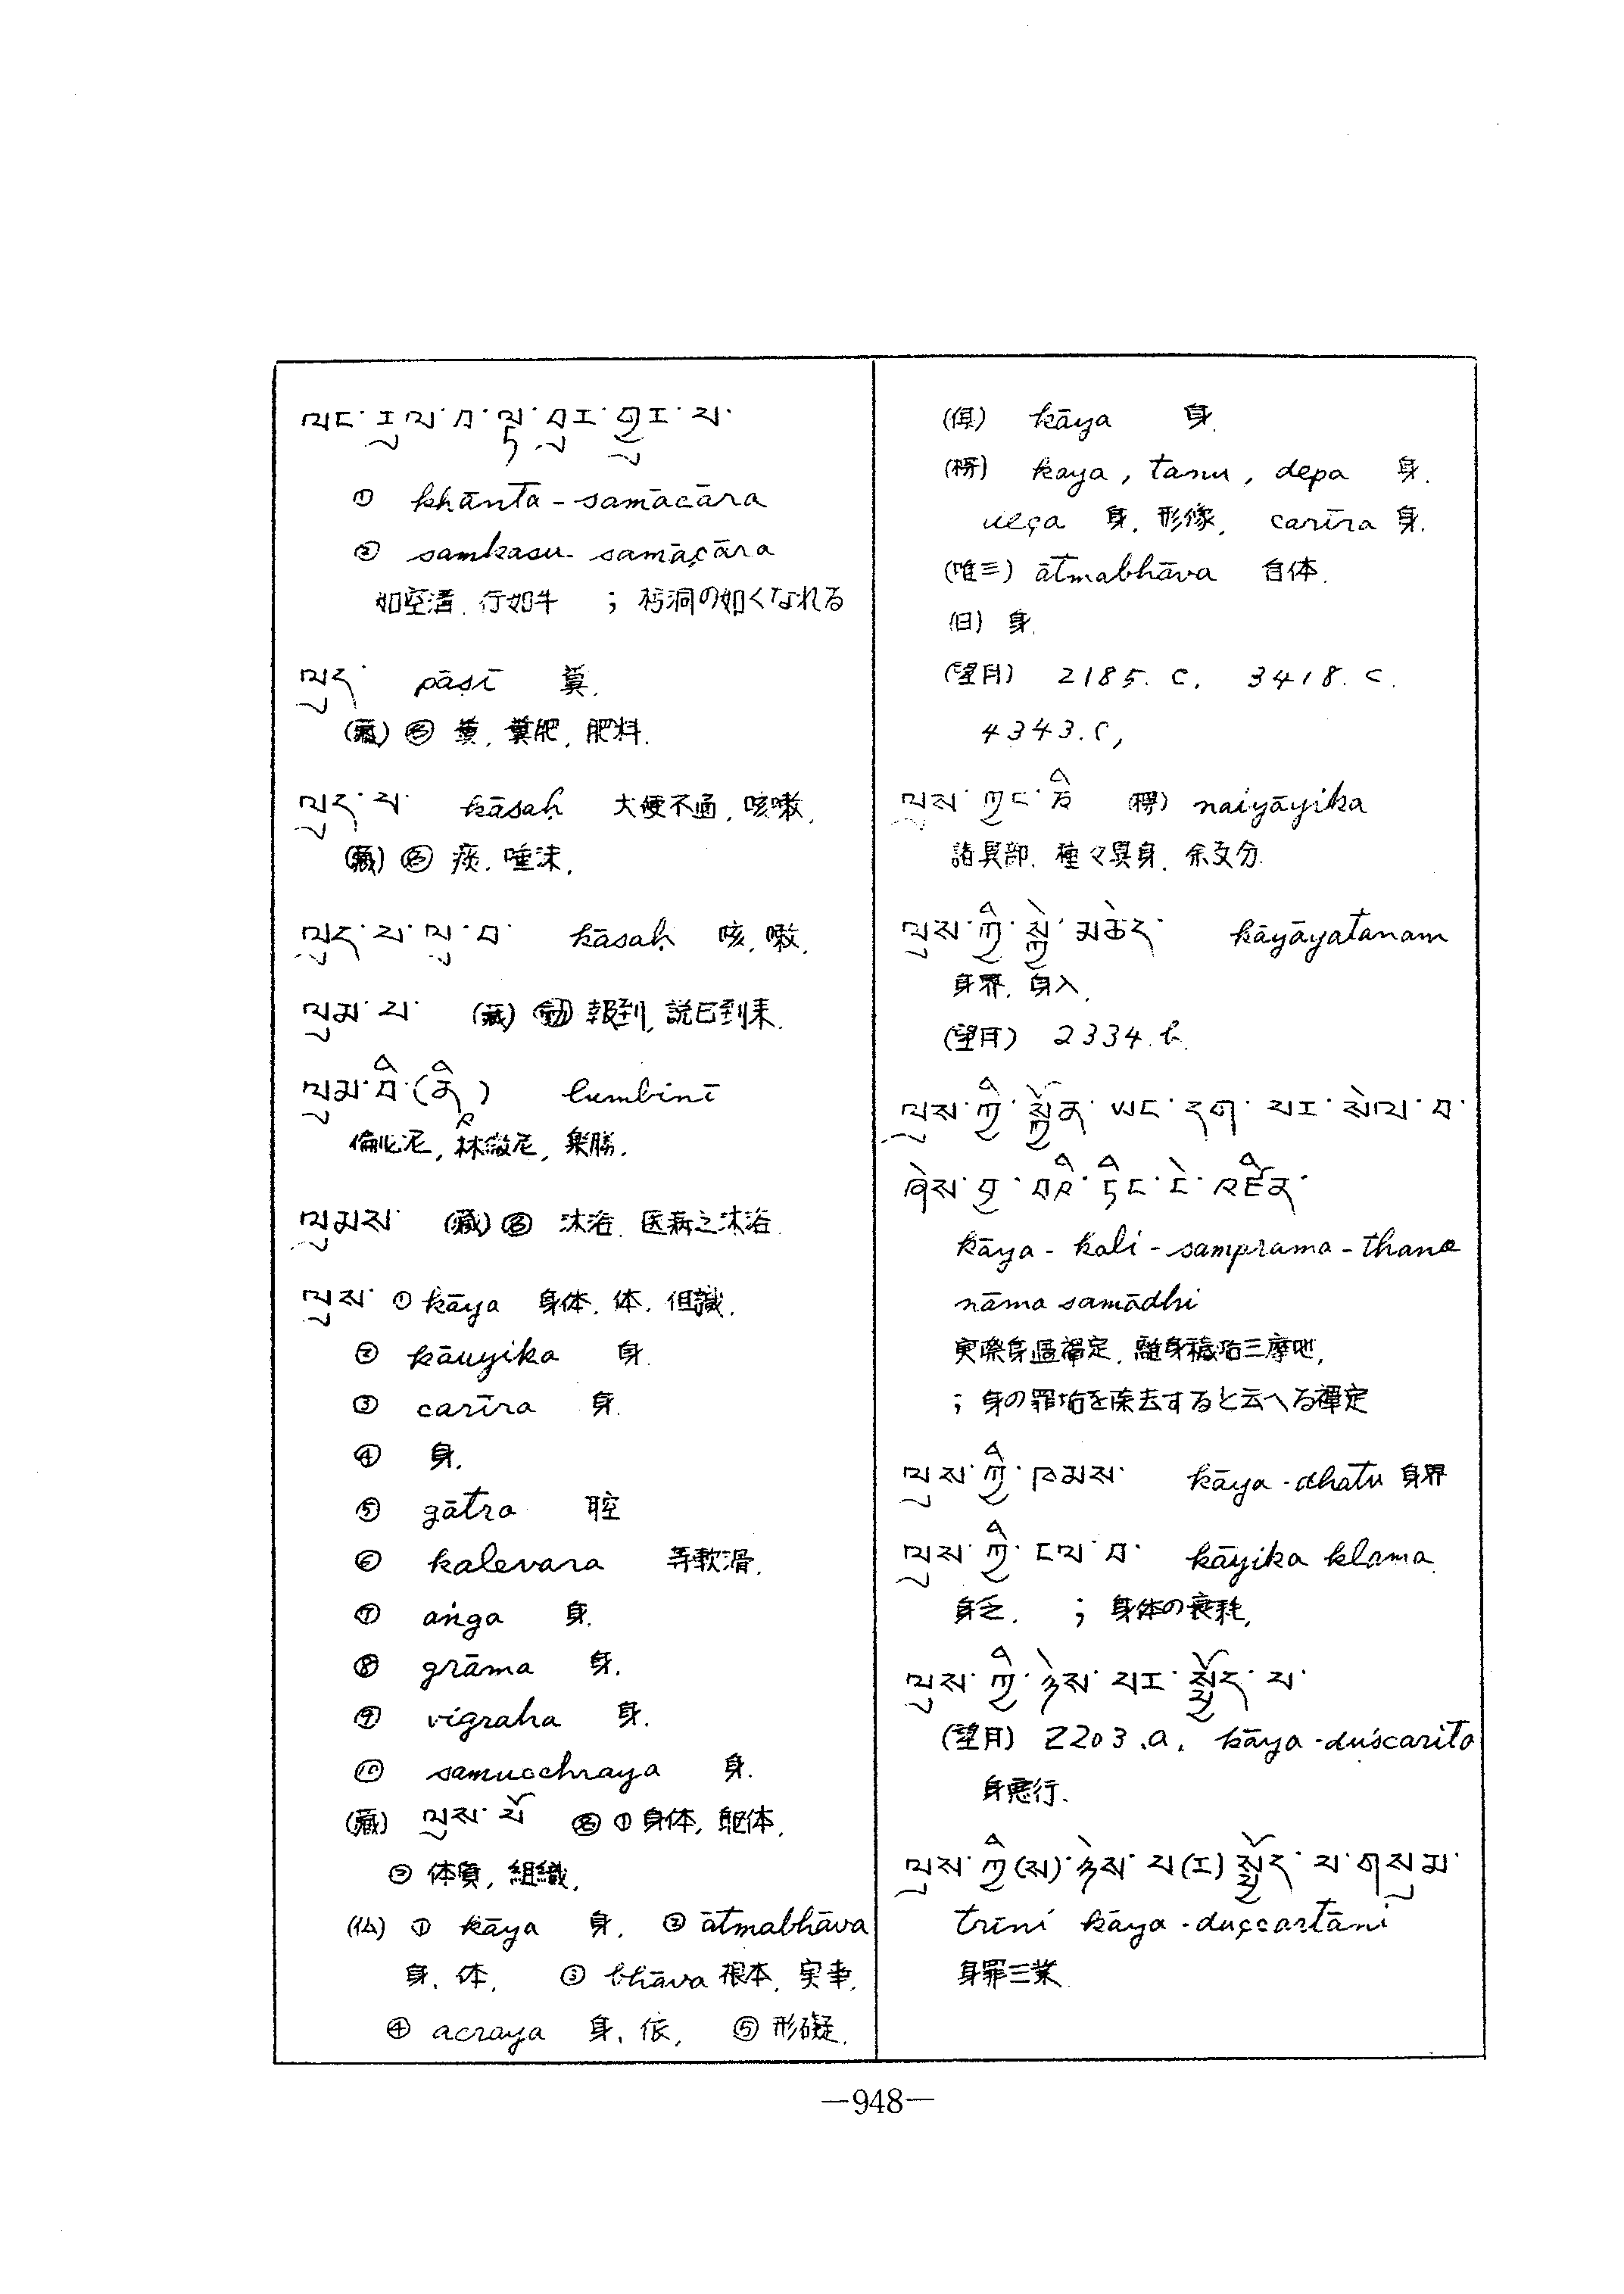 ① khānta-samācāra
② samkasu-samāçāra
如空溝. 行如牛 ; 朽洞の如くなれる
ལུད་ pāśī 糞.
(蔵) 名 糞, 糞肥, 肥料.
ལུད་པ་ kāsaḥ 大便不通, 咳嗽.
(蔵) 名 痰. 唾沫.
ལུད་པ་ལུ་བ་ kāsaḥ 咳, 嗽.
ལུམ་པ་ (蔵) 動 報到, 説已到来.
ལུམ་བི་(ནཱི) lumbinī
倫比尼, 林微尼, 楽勝.
ལུམས་ (蔵) 名 沐浴. 医病之沐浴.
ལུས་ ① kāya 身体. 体. 但識.
② kāuyika 身.
③ carīra 身.
④ 身.
⑤ gātra 腔
⑥ kalevara 等軟滑.
⑦ aṅga 身.
⑧ grāma 身.
⑨ vigraha 身.
⑩ samucchraya 身.
(蔵) ལུས་པོ 名 ① 身体, 躯体.
② 体質, 組織.
(仏) ① kāya 身. ② ātmabhāva
身. 体. ③ bhāva 根本. 実事.
④ acraya 身. 依. ⑤ 形礙.
(倶) kāya 身.
(楞) kaya, tanu, depa 身.
ueça 身. 形像. carīra 身.
(唯三) ātmabhāva 自体.
(旧) 身.
(望月) 2185. c. 3418. c.
4343. c,
(楞) naiyāyika
諸異部. 種々異身. 余支分.
ལུས་ཀྱི་སྐྱེ་མཆེད་ kāyāyatanam
身界. 身入.
(望月) 2334. b.
ལུས་ཀྱི་སྐྱོན་ཡང་དག་པར་སེལ་བ་
ཞེས་བྱ་བའི་ཏིང་ངེ་འཛིན་
kāya-kali-samprama-thana
nāma samādhi
実際身過禅定. 離身穢垢三摩地.
; 身の罪垢を除去すると云へる禅定
ལུས་ཀྱི་ཁམས་ kāya-dhatu 身界
ལུས་ཀྱི་ངལ་བ་ kāyika klama.
身乏. ; 身体の衰耗.
ལུས་ཀྱི་ཉེས་པར་སྤྱོད་པ་
(望月) 2203. a. kāya-duścarita
身悪行.
ལུས་ཀྱི(ས)་ཉེས་པ(ར)སྤྱོད་པ་གསུམ་
trīni kāya-duççartāni
身罪三業.
—948—